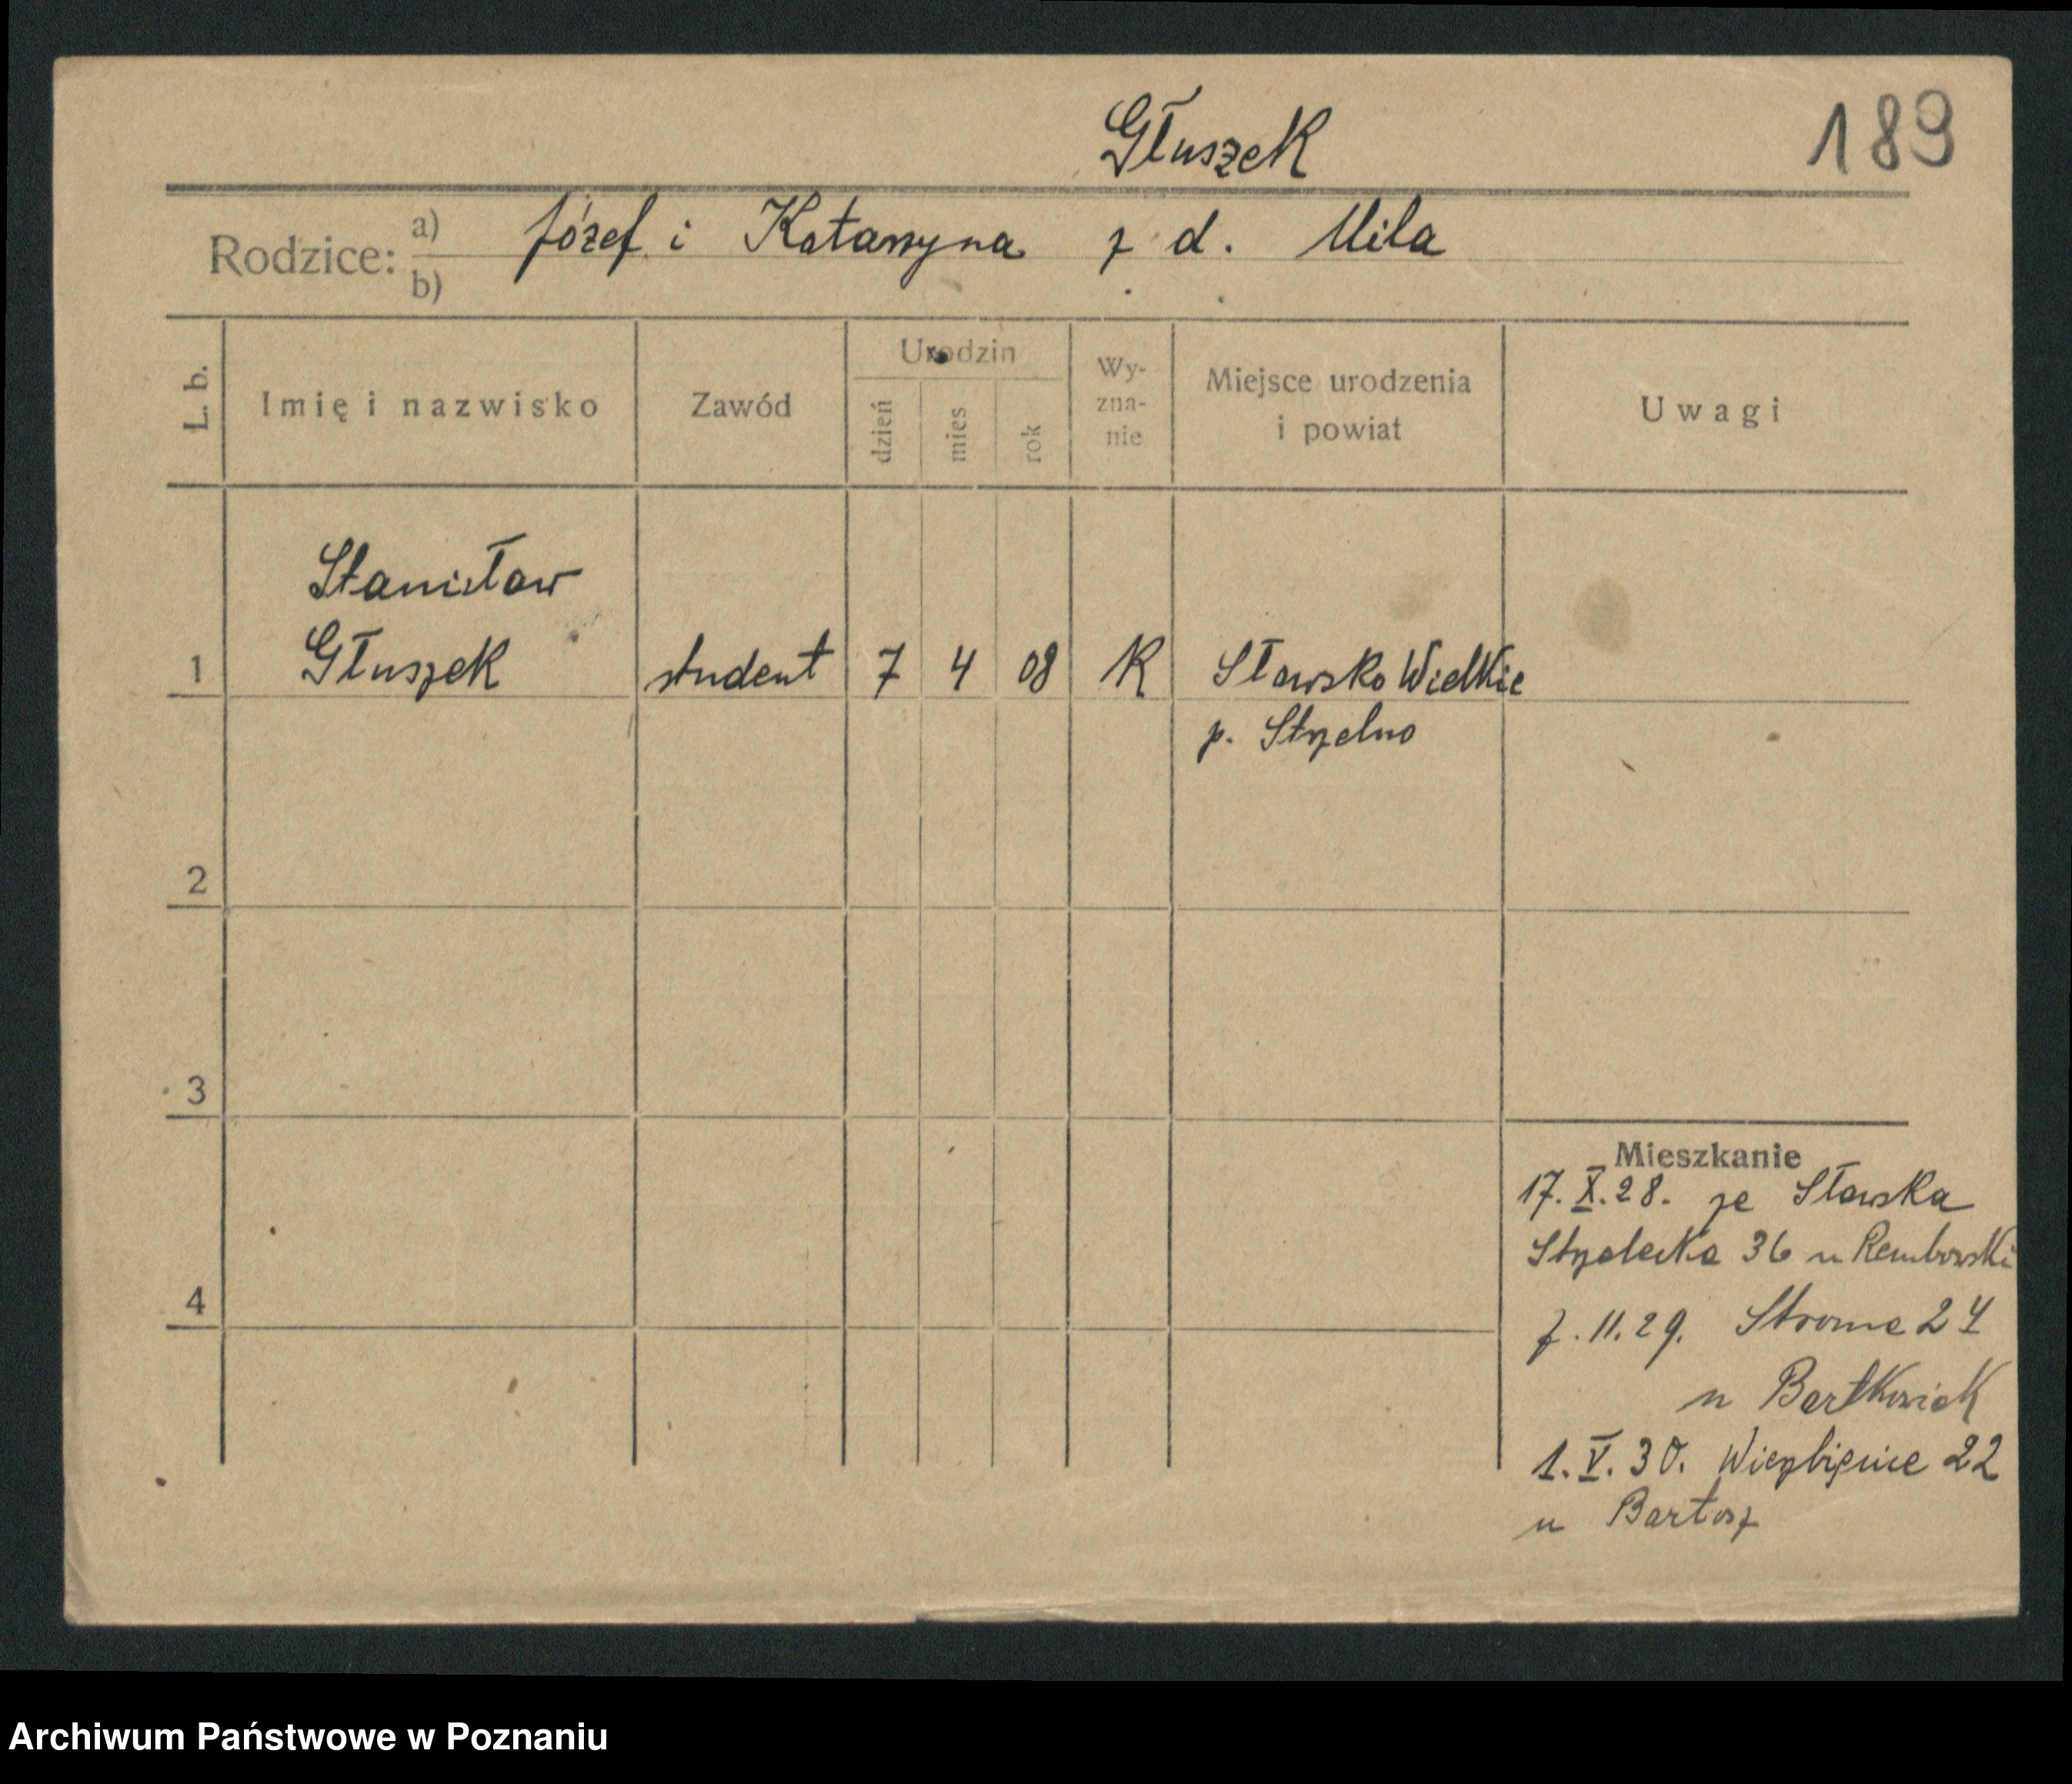 Głuszek
189
Rodzice: a) Józef i Katarzyna z d. Mila
b)
L. b.
Imię i nazwisko
Zawód
Urodzin
dzień
mies
rok
Wy-
zna-
nie
Miejsce urodzenia
i powiat
Uwagi
Stanisław
1 Głuszek student 7 4 08 K Sławsko Wielkie
p. Strzelno
2
3
4
Mieszkanie
17. X. 28. ze Sławska
Strzelecka 36 u Rembowski
7. 11. 29. Strome 24
u Bartkowiak
1. V. 30. Wierzbięcice 22
u Bartosz
Archiwum Państwowe w Poznaniu